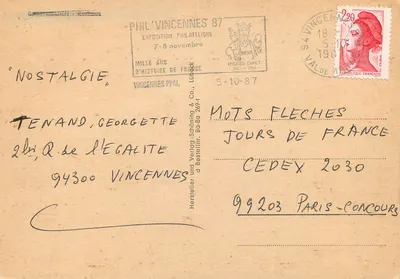 PHIL'VINCENNES'87
EXPOSITION PHILATELIQUE
7-8 novembre
MILLE ANS
D'HISTOIRE DE FRANCE
VINCENNES PPAL
5-10-87
94 VINCENNES
18
5-10
VAL DE
2,20
"NOSTALGIE"
TENAND, GEORGETTE
2bis, Q. de l'EGALITE
94300 VINCENNES
Hersteller und Verlag Schöning & Co., Lübeck
MOTS FLECHES
JOURS DE FRANCE
CEDEX 2030
99203 PARIS-CONCOURS